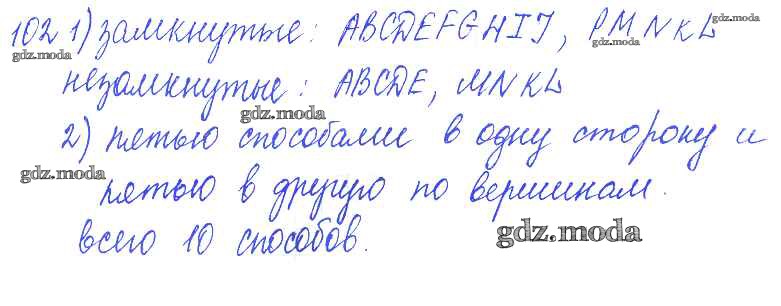 102 1) замкнутые: ABCDEFGHIJ, PMNKL
gdz.moda gdz.moda gdz.moda
незамкнутые: ABCDE, MNKL
gdz.moda gdz.moda
2) пятью способами в одну сторону и
gdz.moda
пятью в другую по вершинам.
всего 10 способов.
gdz.moda